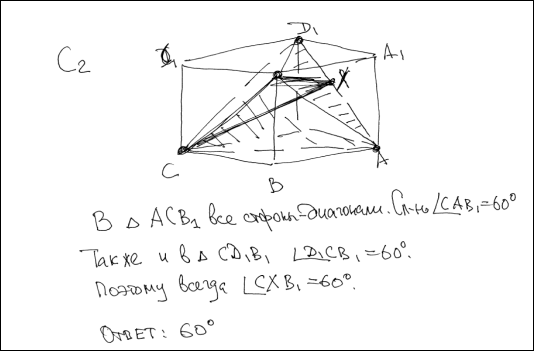 D₁
C₁
A₁
C2
X
C
A
B
В △ ACB₁ все стороны-диагонали. Сл-но ∠CAB₁=60°
Также и в △ CD₁B₁ ∠D₁CB₁=60°.
Поэтому всегда ∠CXB₁=60°.
ОТВЕТ: 60°